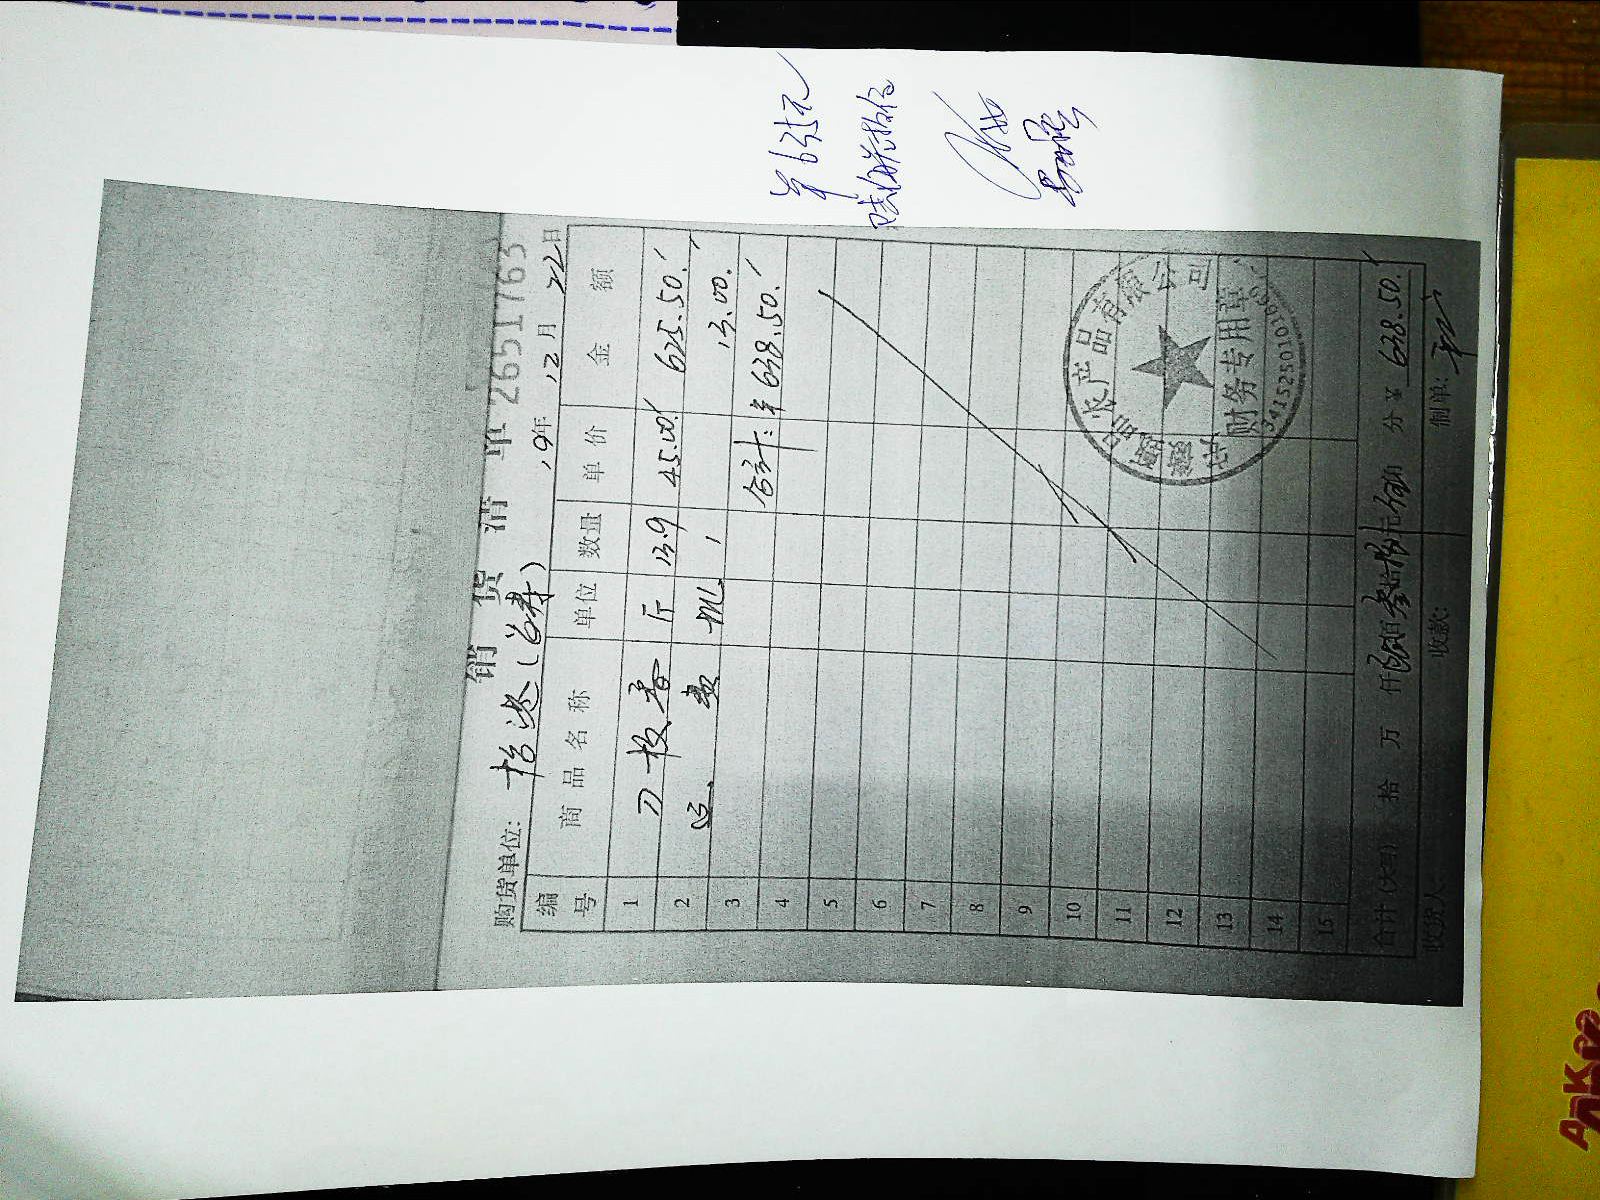 销货清单 2651763
购货单位: 19年 12月 22日
编号 商品名称 单位 数量 单价 金额
1 刀板香 斤 13.9 45.00 625.50
2 运费 1 13.00
3 合计: ¥638.50
4
5
6
7
8
9
10
11
12
13
14
15
农产品有限公司
财务专用章
合计(大写) 拾 万 仟 陆佰叁拾捌元伍角 分 ¥638.50
收货人: 收款: 制单: